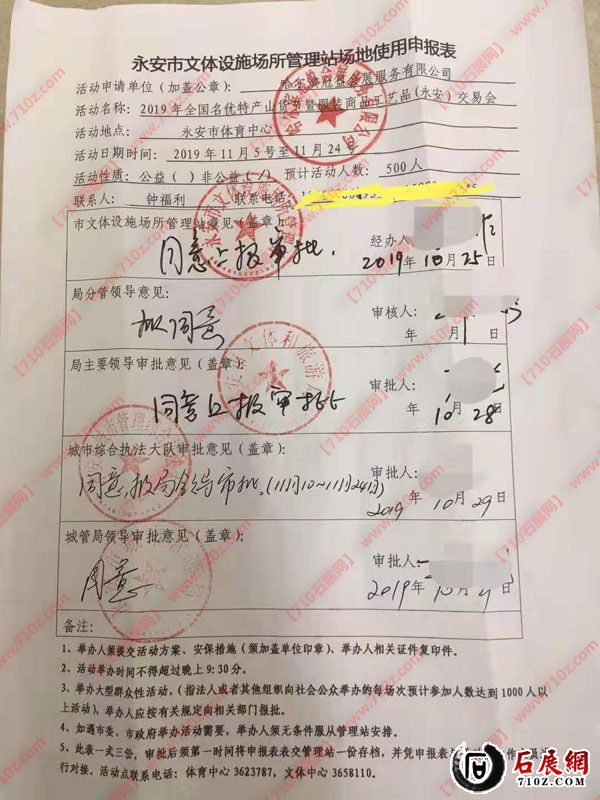 永安市文体设施场所管理站场地使用申报表
活动申请单位（加盖公章）： 哈尔滨冠盛会展服务有限公司
活动名称：2019年全国名优特产山货节暨服装商品工艺品(永安)交易会
活动地点： 永安市体育中心
活动日期时间：2019年11月5号至11月24号
活动性质：公益（ ）非公益（ ） 预计活动人数： 500人
联系人： 钟福利 联系电话：
市文体设施场所管理站意见（盖章）：
经办人
同意上报审批.
2019年10月25日
局分管领导意见：
审核人：
拟同意
年 月 日
局主要领导审批意见（盖章）：
审批人：
同意上报审批
年10月28日
城市综合执法大队审批意见（盖章）：
审批人：
同意,报局领导审批.(11月10~11月24日)
2019年10月29日
城管局领导审批意见（盖章）：
审批人：
同意
2019年10月 日
备注：
1、举办人须提交活动方案、安保措施（须加盖单位印章）、举办人相关证件复印件。
2、活动举办时间不得超过晚上9:30分。
3、举办大型群众性活动，（指法人或者其他组织向社会公众举办的每场次预计参加人数达到1000人以
上活动），举办人应按有关规定向相关部门报批。
4、如遇市委、市政府举办活动需要，举办人须无条件服从管理站安排。
5、此表一式三份，审批后须第一时间将申报表表交管理站一份存档，并凭申报表与 作人员进
行对接。活动点联系电话：体育中心 3623787，文体中心 3658110。
【710石展网】
www.710z.com
石展網
www.710z.com